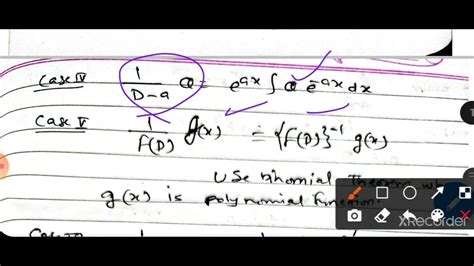 Case IV 1/(D-a) Q = e^{ax} ∫ Q e^{-ax} dx
Case V 1/F(D) g(x) = {F(D)}^{-1} g(x)
Use binomial Theorem
g(x) is polynomial function.
XRecorder